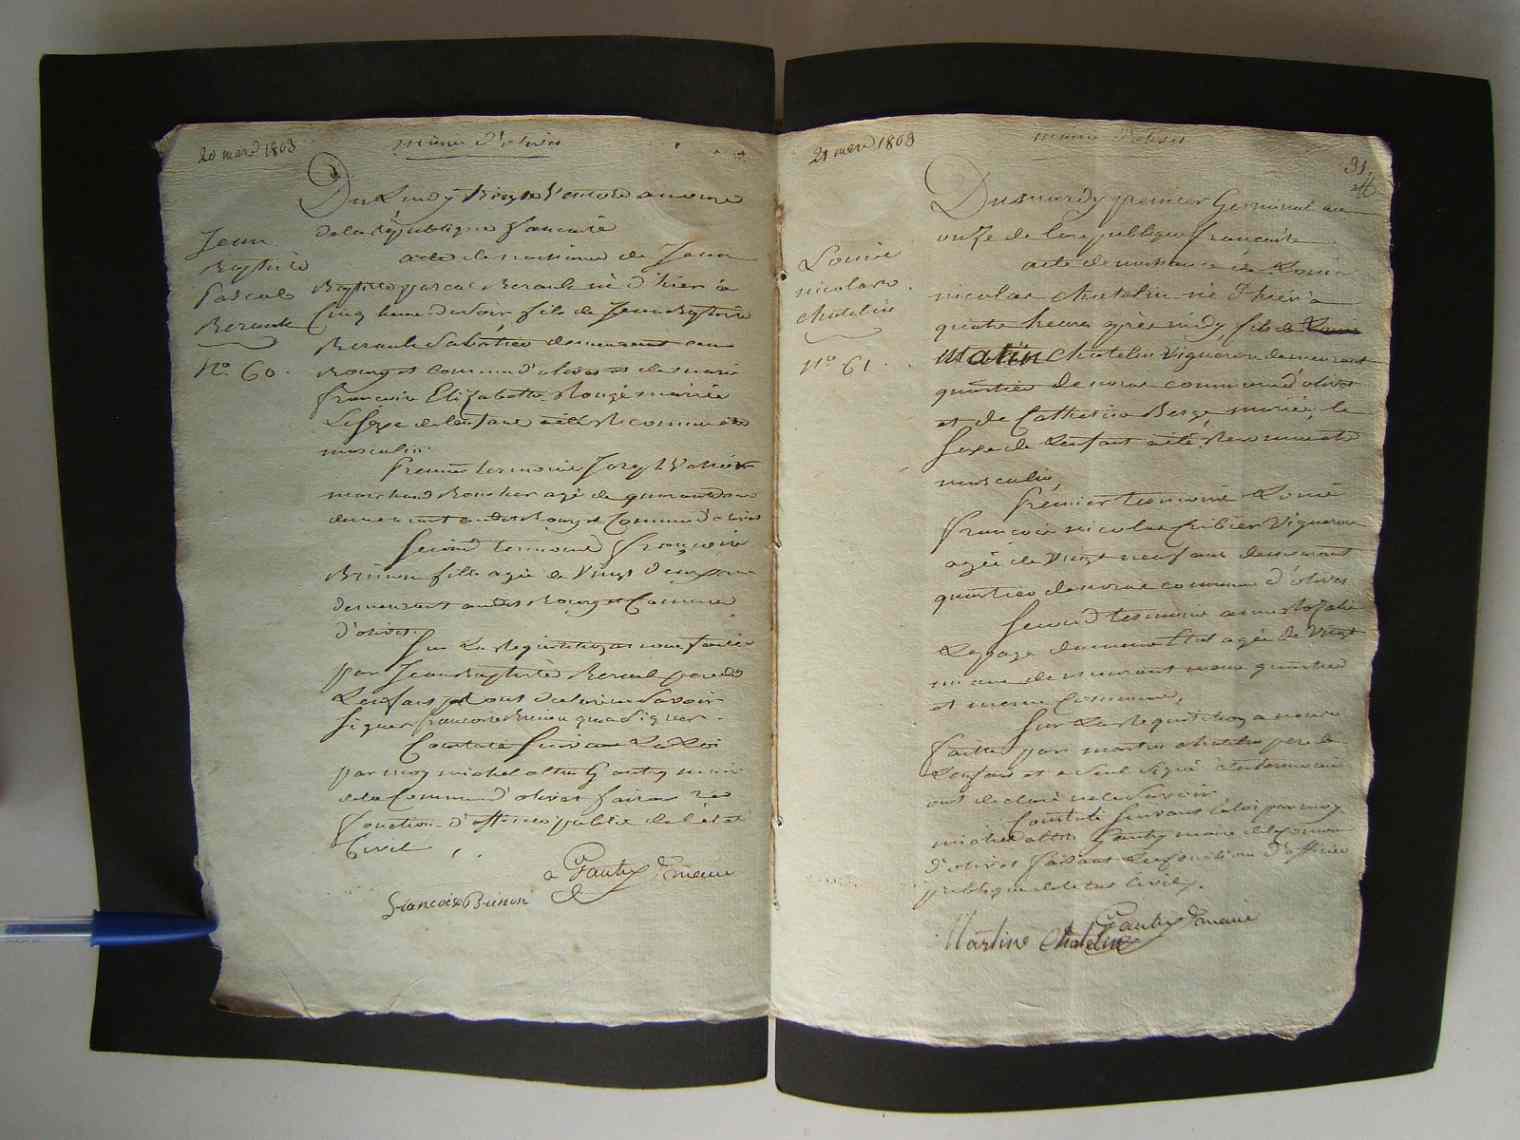 20 mars 1803
mairie d'olivet
Du Lundy Vingt Ventose an onze
de la République francaise
Jean
Baptiste
Pascal
Berault
N.º 60.
acte de naissance de Jean
Baptiste pascal Berault né d'hier à
Cinq heure du soir fils de Jean Baptiste
Berault Sabotier demeurant au
Bourg et commune d'olivet et de marie
francoise Elizabette Rougé mariée
Le sexe de lenfant a été Reconnu être
masculin
Premier temoin Joseph
marchand Boucher agé de quarante ans
demeurant audit Bourg et Commune d'olivet
second temoin françoise
Brinon fille agée de Vingt deux ans
demeurant audit Bourg et Commune
d'olivet
Sur La Requisition a nous faitte
par Jean Baptiste Berault pere de
Lenfant
signer francoise Brinon qui a signer.
Constaté suivant La Loi
par moy michel Gautry maire
de la Commune d'olivet faisant les
fonction d'officier public de l'état
Civil
Gautry maire
francoise Brinon
21 mars 1803
mairie d'olivet
31.
Du mardy premier Germinal an
onze de la republique francaise
Louis
nicolas
chatelin
N.º 61.
acte de naissance de Louis
nicolas chatelin né d'hier à
quatre heures après midy fils de Louis
Martin Chatelin Vigneron demeurant
quartier de commune d'olivet
et de Catherine Bergé mariée, le
sexe de Lenfant a été Reconnu etre
masculin,
Premier temoin Louis
francois nicolas Cribier Vigneron
agée de Vingt neuf ans demeurant
quartier de commune d'olivet
second temoin anne Rosalie
Lepage agée de Vingt
un ans demeurant meme quartier
et meme Commune,
Sur La Requisition a nous
faitte par martin chatelin pere de
Lenfant et a seul signé
ont declaré ne le savoir
Constaté suivant la loi par moy
michel Gautry maire de la commune
d'olivet faisant les fonction d'officier
publique de l'etat Civil.
Gautry maire
Martin Chatelin